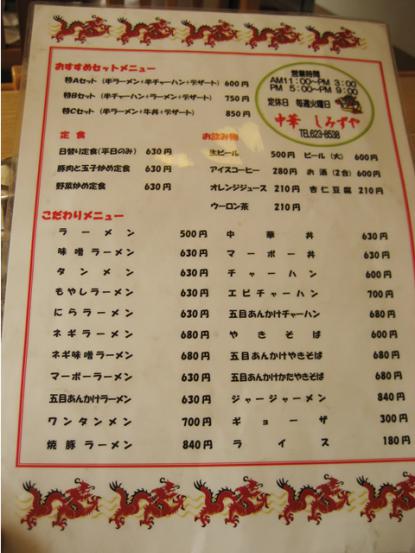 おすすめセットメニュー
特Aセット (半ラーメン+半チャーハン+デザート) 600円
特Bセット (半チャーハン+ラーメン+デザート) 750円
特Cセット (半ラーメン+牛丼+デザート) 850円
営業時間
AM11:00〜PM 3:00
PM 5:00〜PM 9:00
定休日 毎週火曜日
中華 しみずや
TEL623-8538
定食
日替り定食(平日のみ) 630円
豚肉と玉子炒め定食 630円
野菜炒め定食 630円
お飲み物
生ビール 500円 ビール (大) 600円
アイスコーヒー 280円 お酒 (2合) 600円
オレンジジュース 210円 杏仁豆腐 210円
ウーロン茶 210円
こだわりメニュー
ラーメン 500円 中華丼 630円
味噌ラーメン 630円 マーボー丼 630円
タンメン 630円 チャーハン 600円
もやしラーメン 630円 エビチャーハン 700円
にらラーメン 630円 五目あんかけチャーハン 680円
ネギラーメン 680円 やきそば 600円
ネギ味噌ラーメン 680円 五目あんかけやきそば 680円
マーボーラーメン 630円 五目あんかけかたやきそば 680円
五目あんかけラーメン 630円 ジャージャーメン 840円
ワンタンメン 700円 ギョーザ 300円
焼豚ラーメン 840円 ライス 180円